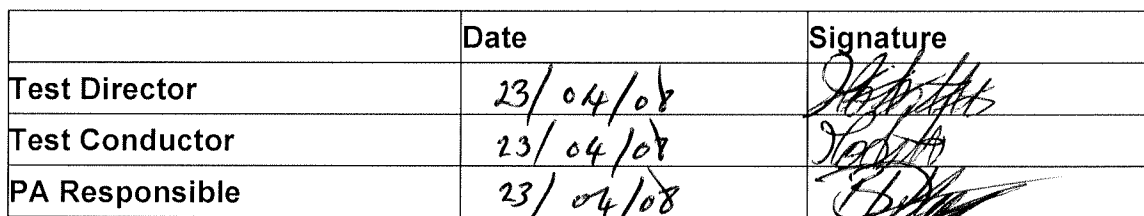 Date Signature
Test Director 23/04/08
Test Conductor 23/04/08
PA Responsible 23/04/08